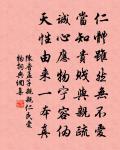 仁憫雖然無不愛
當知貴賤與親疏
誠心應物寧容偽
天性由來一本真
陳普孟子親親仁民愛
物詞典網集